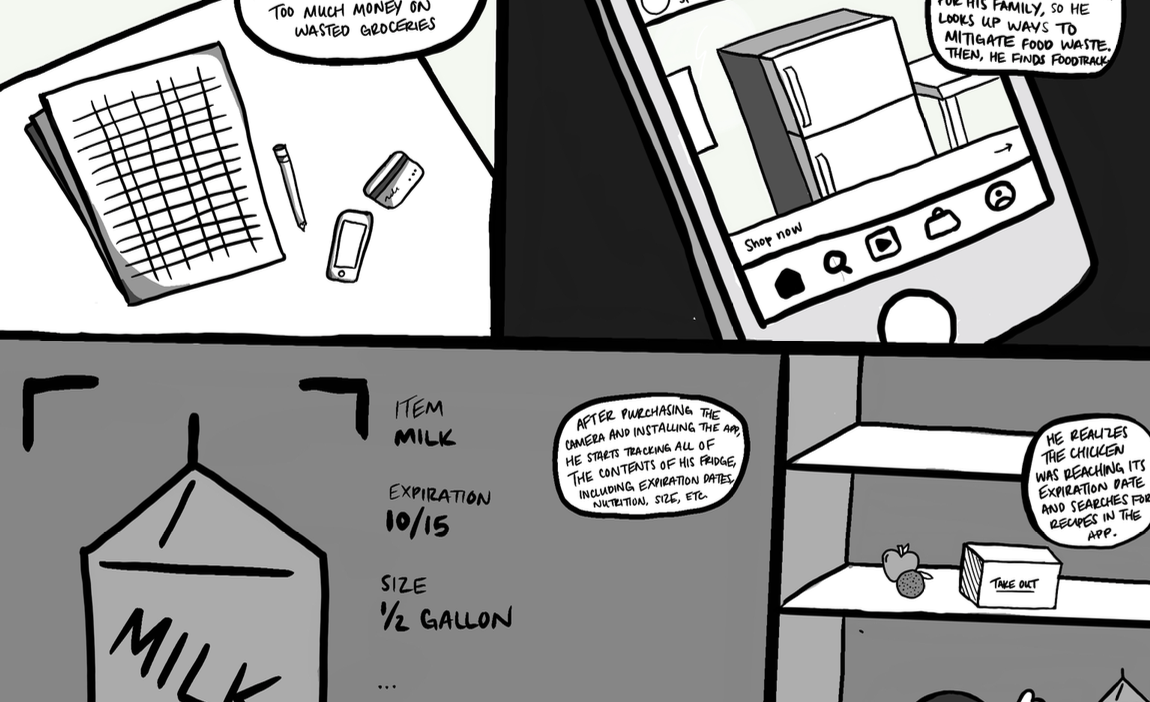 TOO MUCH MONEY ON
WASTED GROCERIES
FOR HIS FAMILY, SO HE
LOOKS UP WAYS TO
MITIGATE FOOD WASTE.
THEN, HE FINDS FOODTRACK.
Shop now
ITEM
MILK
EXPIRATION
10/15
SIZE
1/2 GALLON
...
MILK
AFTER PURCHASING THE
CAMERA AND INSTALLING THE APP,
HE STARTS TRACKING ALL OF
THE CONTENTS OF HIS FRIDGE,
INCLUDING EXPIRATION DATES,
NUTRITION, SIZE, ETC.
HE REALIZES
THE CHICKEN
WAS REACHING ITS
EXPIRATION DATE
AND SEARCHES FOR
RECIPES IN THE
APP.
TAKE OUT